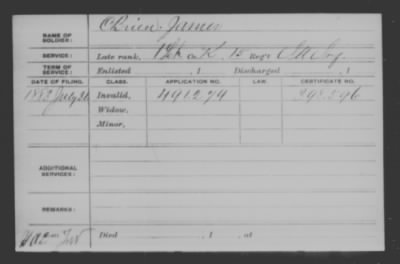 NAME OF SOLDIER: O'Brien James
SERVICE: Late rank, Co. K, 15 Reg't
TERM OF SERVICE: Enlisted , 1 Discharged , 1
DATE OF FILING. CLASS. APPLICATION NO. LAW. CERTIFICATE NO.
1883 July Invalid, 491279
Widow,
Minor,
ADDITIONAL SERVICES:
REMARKS:
Died , 1 , at